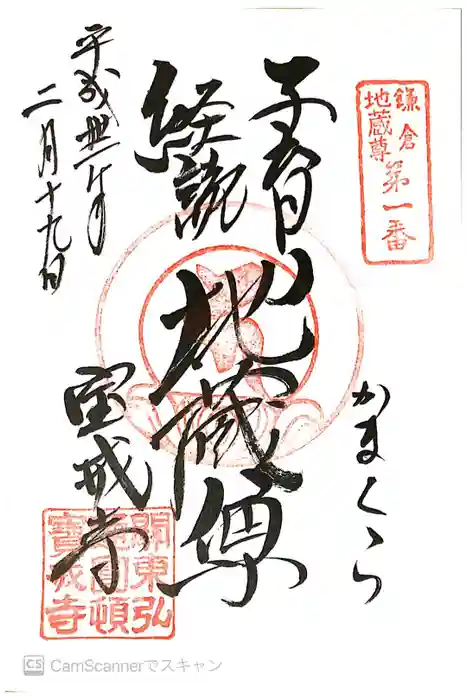 鎌倉
地蔵尊
第一番
かまくら
子育
経読
地蔵尊
宝戒寺
平成丗一年
二月十九日
關東弘
圓頓
寶戒寺
CS CamScannerでスキャン